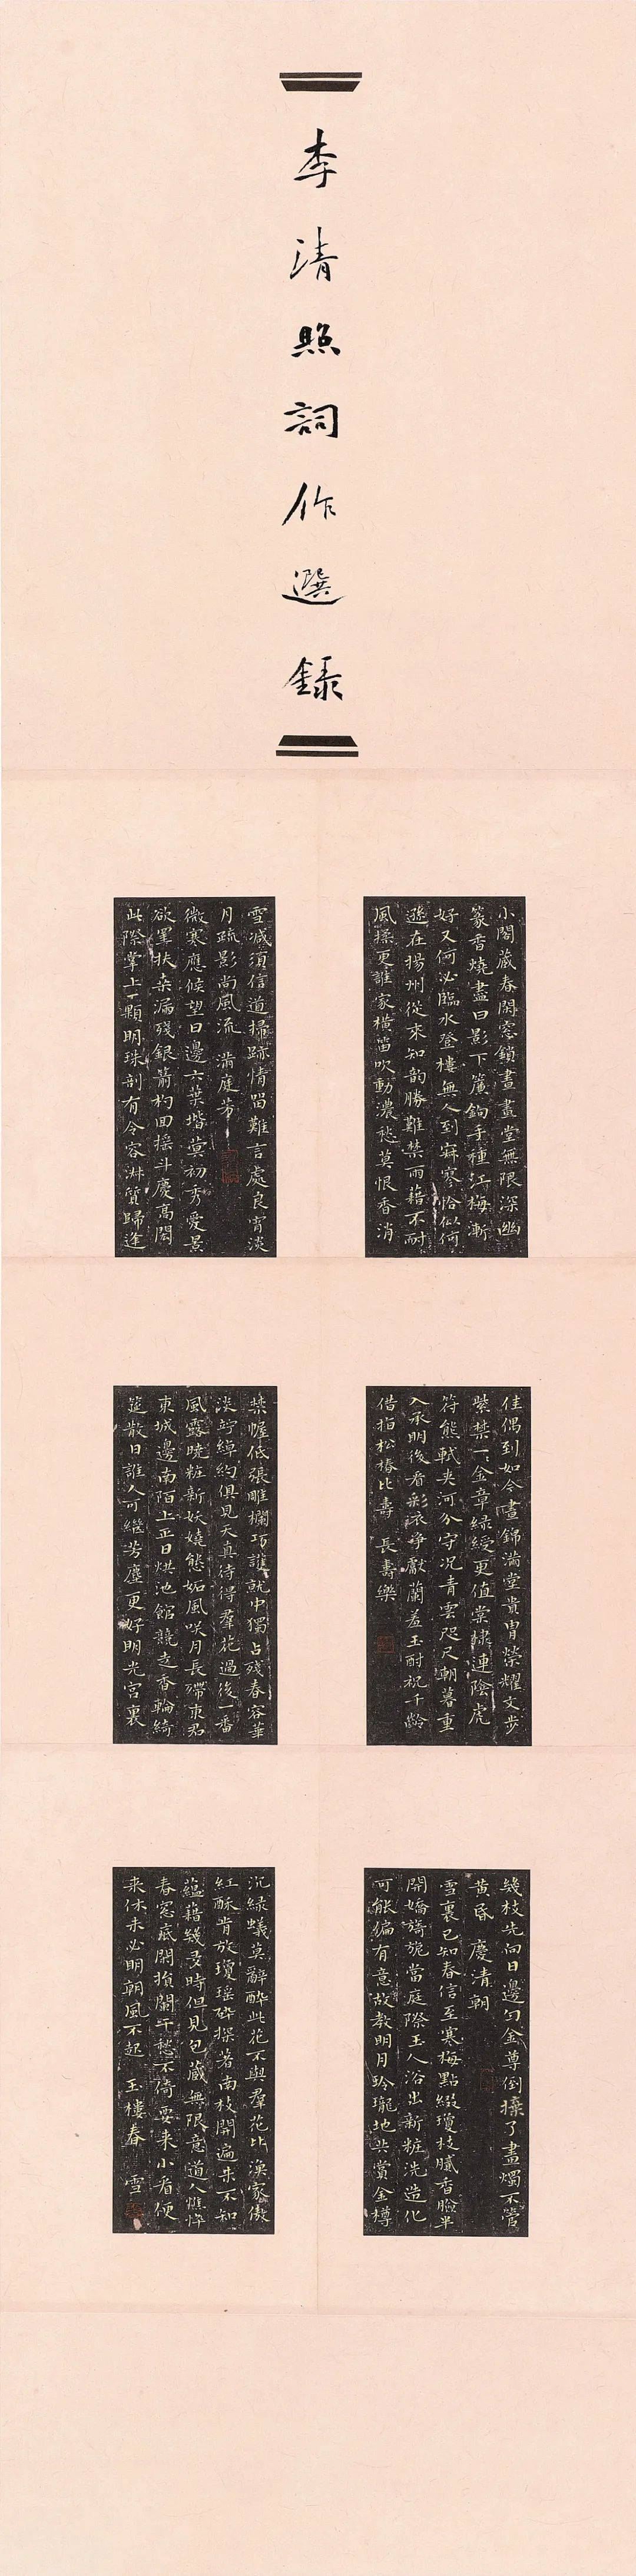 李清照詞作選錄
小閣藏春閑窓鎖晝畫堂無限深幽
篆香燒盡日影下簾鉤手種江梅漸
好又何必臨水登樓無人到寂寥恰似何
遜在揚州從來知韵勝難禁雨藉不耐
風揉更誰家橫笛吹動濃愁莫恨香消
雪减須信道掃跡情留難言處良宵淡
月疏影尚風流 滿庭芳
微寒應候望日邊六葉堦蓂初秀愛景
欲罣扶桑漏殘銀箭杓回搖斗慶高閎
此際掌上一顆明珠剖有令容淑質歸逢
佳偶到如今晝錦滿堂貴胄榮耀文步
紫禁一一金章綠綬更值棠棣連陰虎
符熊軾夾河分守况青雲咫尺朝暮重
入承明後看彩衣爭獻蘭羞玉酎祝千齡
借指松椿比壽 長壽樂
禁幄低張雕欄巧護就中獨占殘春容華
淡竚綽約俱見天真待得羣花過後一番
風露曉粧新妖嬈態妬風咲月長殢東君
東城邊南陌上正日烘池館競走香輪綺
筵散日誰人可繼芳塵更好明光宮裏
幾枝先向日邊勻金尊倒拚了畫燭不管
黃昏 慶清朝
雪裏已知春信至寒梅點綴瓊枝膩香臉半
開嬌旖旎當庭際玉人浴出新粧洗造化
可能偏有意故教明月玲瓏地共賞金樽
沉綠蟻莫辭醉此花不與羣花比 漁家傲
紅酥肯放瓊瑤碎探著南枝開遍未不知
蘊藉幾多時但見包藏無限意道人憔悴
春窓底閑損闌干愁不倚要來小看便
來休未必明朝風不起 玉樓春 雪